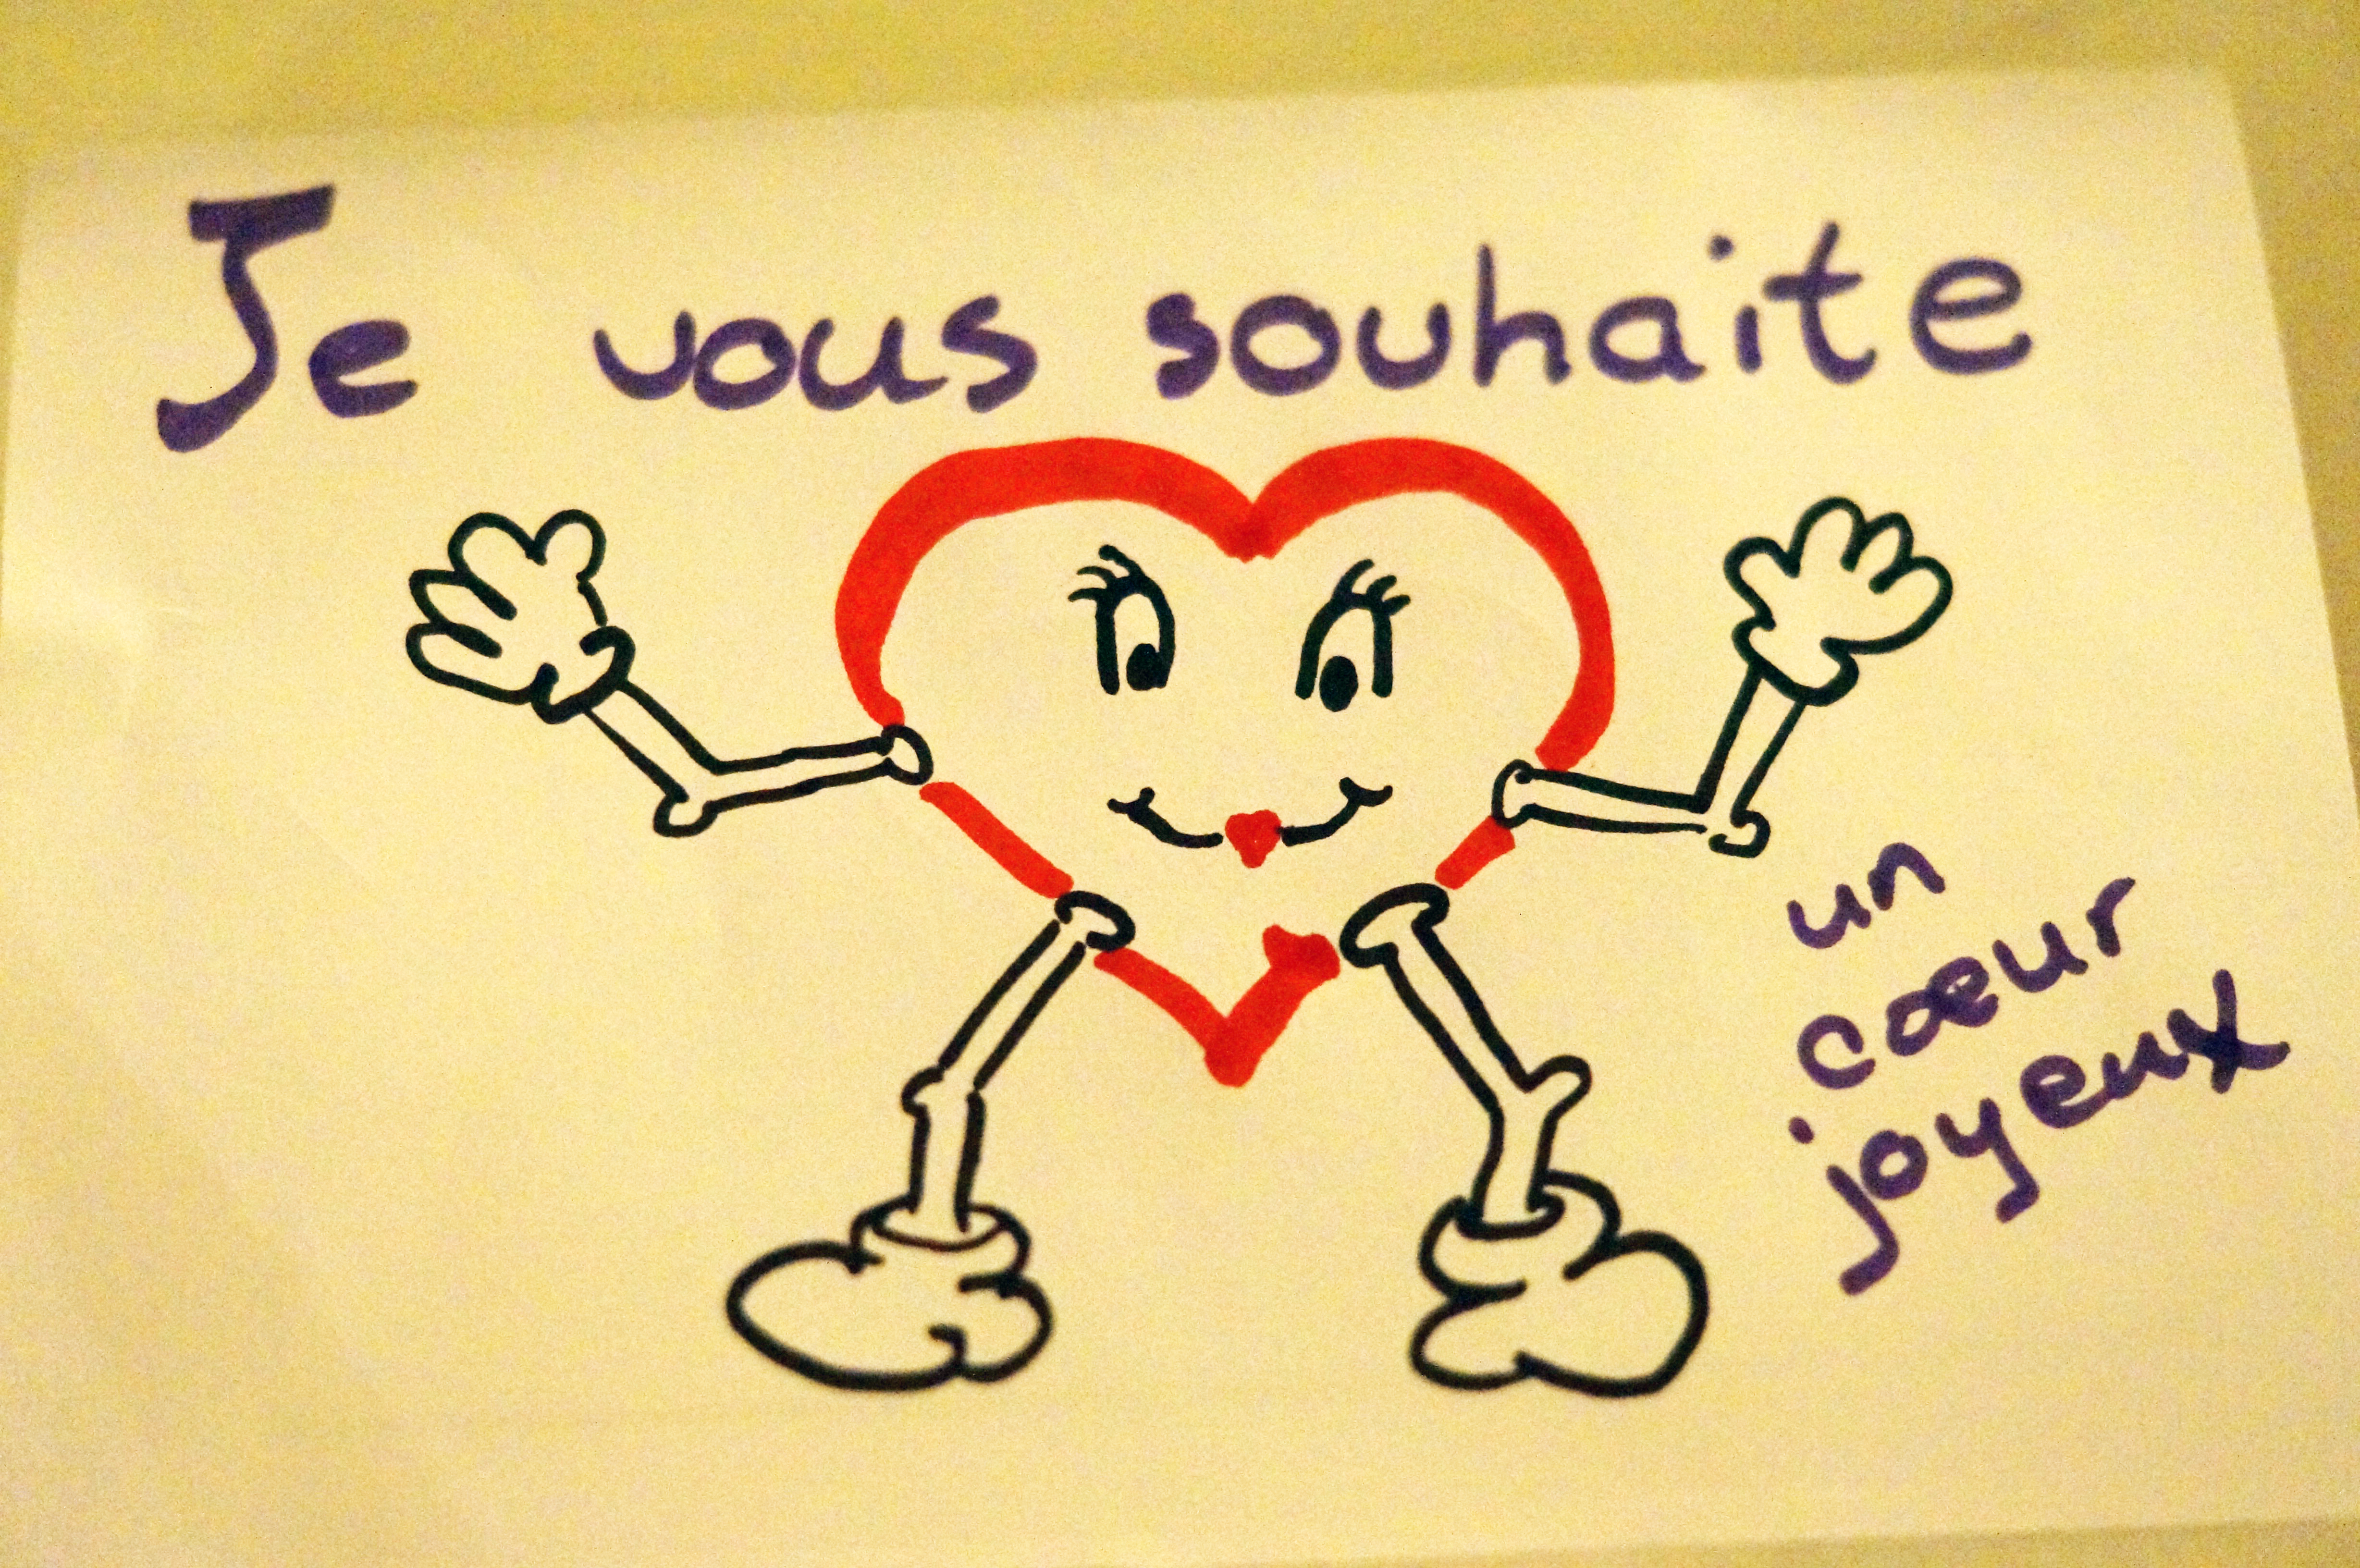 Je vous souhaite
un
cœur
joyeux